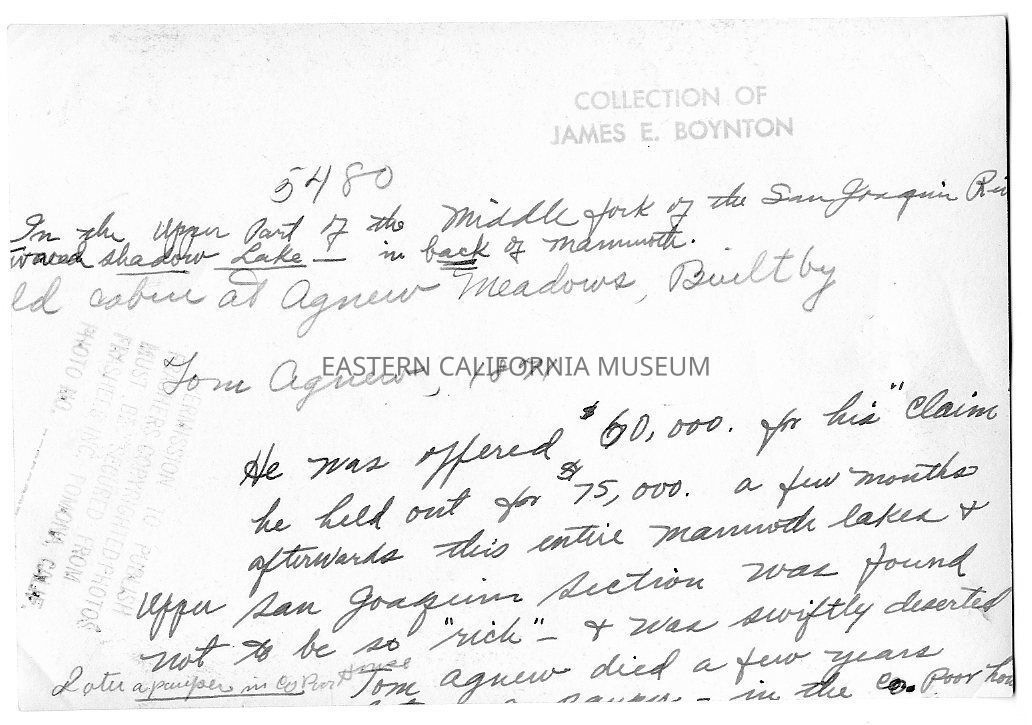 COLLECTION OF
JAMES E. BOYNTON
5480
In the Upper Part of the Middle fork of the San Joaquin Ri
toward shadow Lake — in back of mammoth.
ld cabin at Agnew Meadows, Built by
EASTERN CALIFORNIA MUSEUM
Tom Agnew, 1877
PERMISSION TO PUBLISH
COPYRIGHTED PHOTOS
MUST BE SECURED FROM
FRASHERS INC. POMONA, CALIF.
PHOTO NO.
He was offered $60,000. for his "claim
he held out for $75,000. a few months
afterwards this entire mammoth lakes &
Upper san Joaquin section was found
not to be so "rich" - & was swiftly deserted
Tom agnew died a few years
Later a pauper in Co Poor House
pauper - in the Co. Poor hou